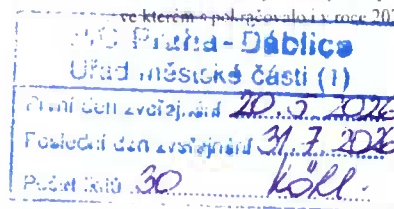 ve kterém s pokračovalo i v roce 202
MČ Praha - Ďáblice
Úřad městské části (1)
První den zveřejnění 20.5 2026
Poslední den zveřejnění 31.7. 2026
Počet listů 30